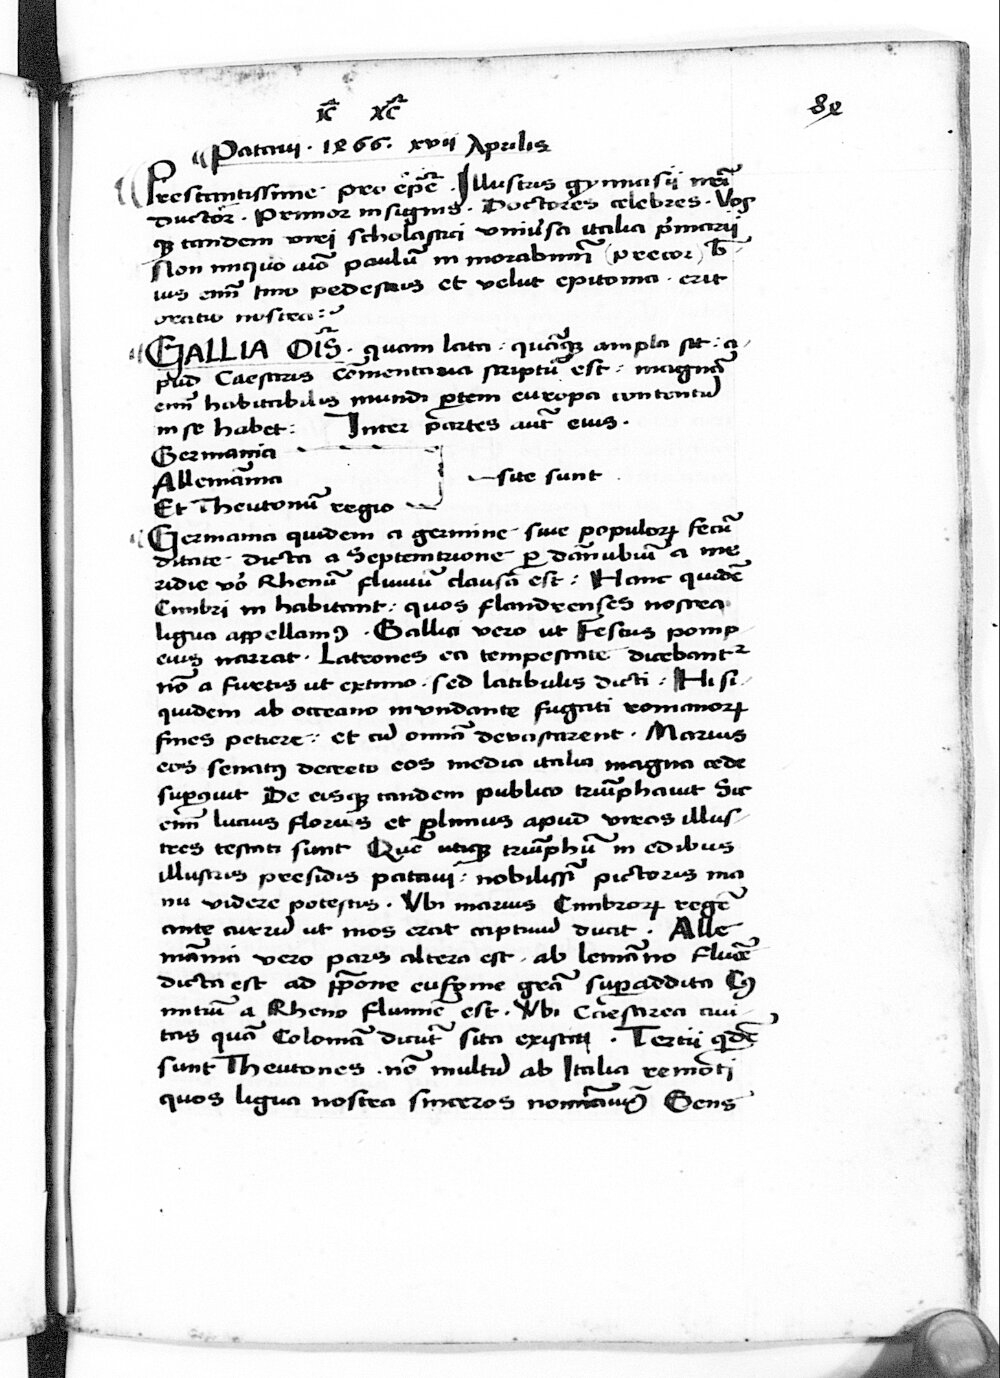 ic̄ xc̄
82
Patavii · 1466 · xvii Aprilis
Prestantissime pro ep̄e · Illustris gymnasii nr̄i
ductor̄ · Primor insignis · Doctores celebres · Vos
qȝ tandem viri scholastici univ̄sa italia p̄marii
Non iniquo aīo paulū in morabimī (precor) b̄
ius enī imo pedestris et velut epitoma · erit
oratio nostra :
GALLIA OĪS · quam lata : quāqȝ ampla sit : a
pud Caesaris cōmentaria scriptū est : magnā
enī habitabilis mundi ꝑtem europa contentū
in se habet : Inter partes aūt eius ·
Germania
Allemānia — site sunt
Et Theutonū regio
Germania quidem a germine sive populoꝝ fecū
ditate dicta a Septemtrione ꝑ danubiū a me
ridie vō Rhenū fluviū clausa est : Hanc quidē
Cimbri in habitant : quos flandrenses nostra
ligua appellamꝰ · Gallia vero ut Festus pomp
eius narrat · Latrones ea tempestate dicebant
nō a furtis ut extimo · sed latibulis dicti : Hi si
quidem ab occeano inundante fugati romanoꝝ
fines petiere : et cū omnia devastarent · Marius
eos senatꝰ decreto eos media italia magna cede
suꝑavit De eisqȝ tandem publico triūphavit Sic
enī lucius florus et plinius apud viros illus
tres testati sunt Quē utiqȝ triūphū in edibus
illustris presidis patavi : nobilissī pictoris ma
nu videre potestis · Ubi marius Cimbroꝝ regē
ante currū ut mos erat captivū ducit · Alle
mānia vero pars altera est · ab lemānno fluvē
dicta est ad p̄pone eufōnie grā suꝑaddita Cꝰ
initiū a Rheno flumīe est · Ubi Caesarea civi
tas quā Coloniā dicūt sita existit · Tertii qdē
sunt Theutones · nō multū ab Italia remoti
quos ligua nostra sinceros nomīamꝰ Gens